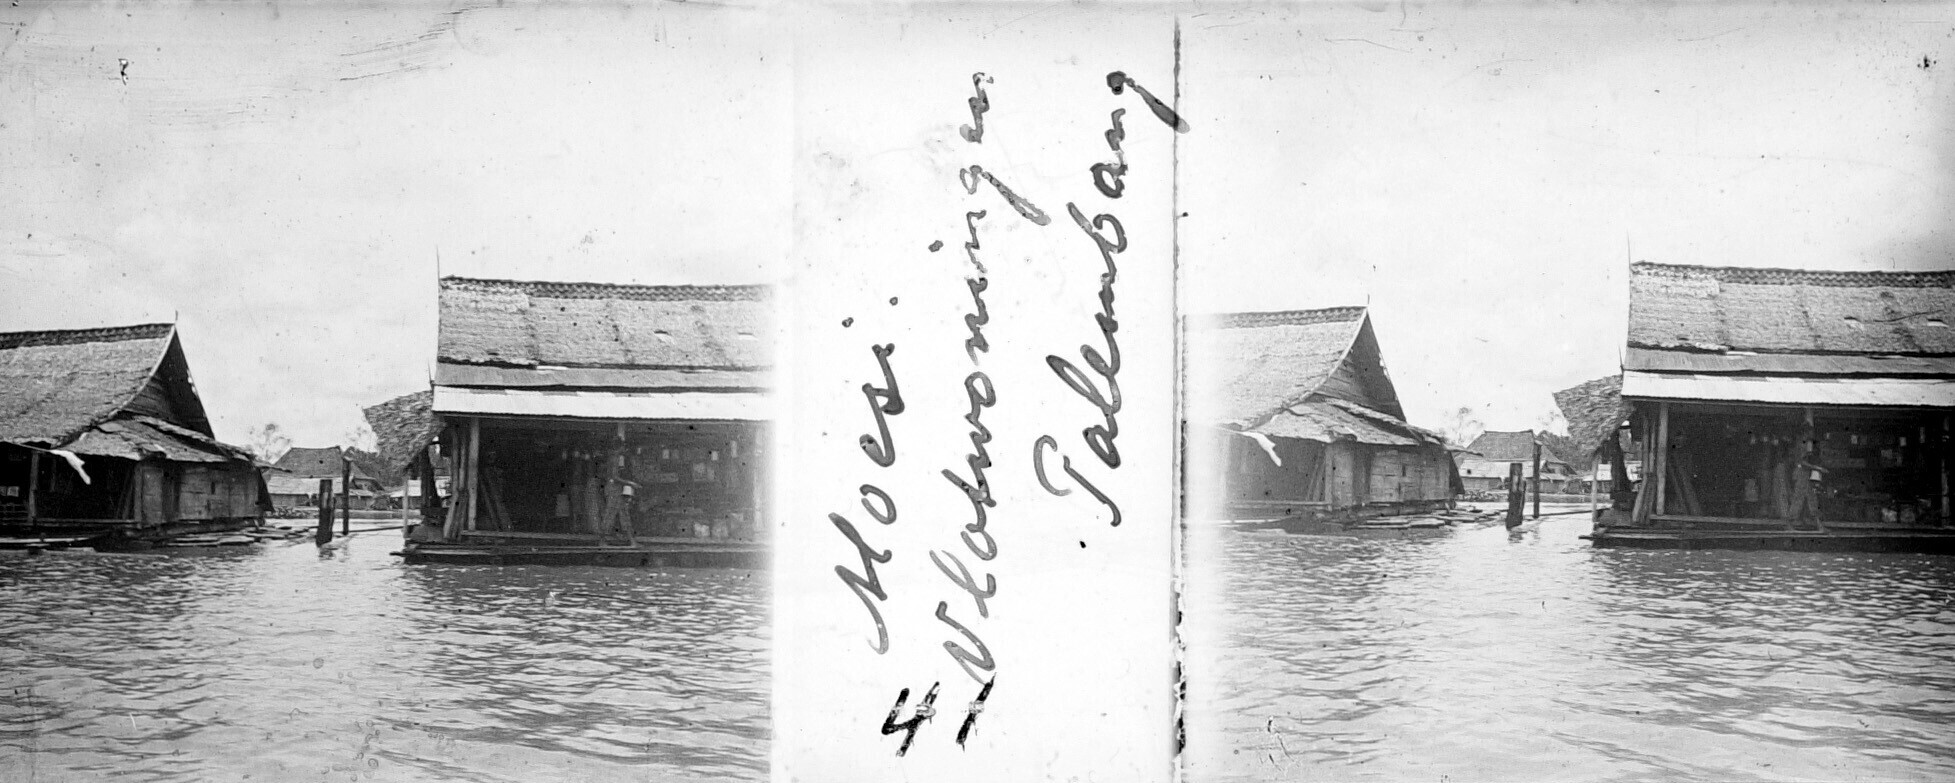 Moesi.
Vlotwoningen
Palembang
4